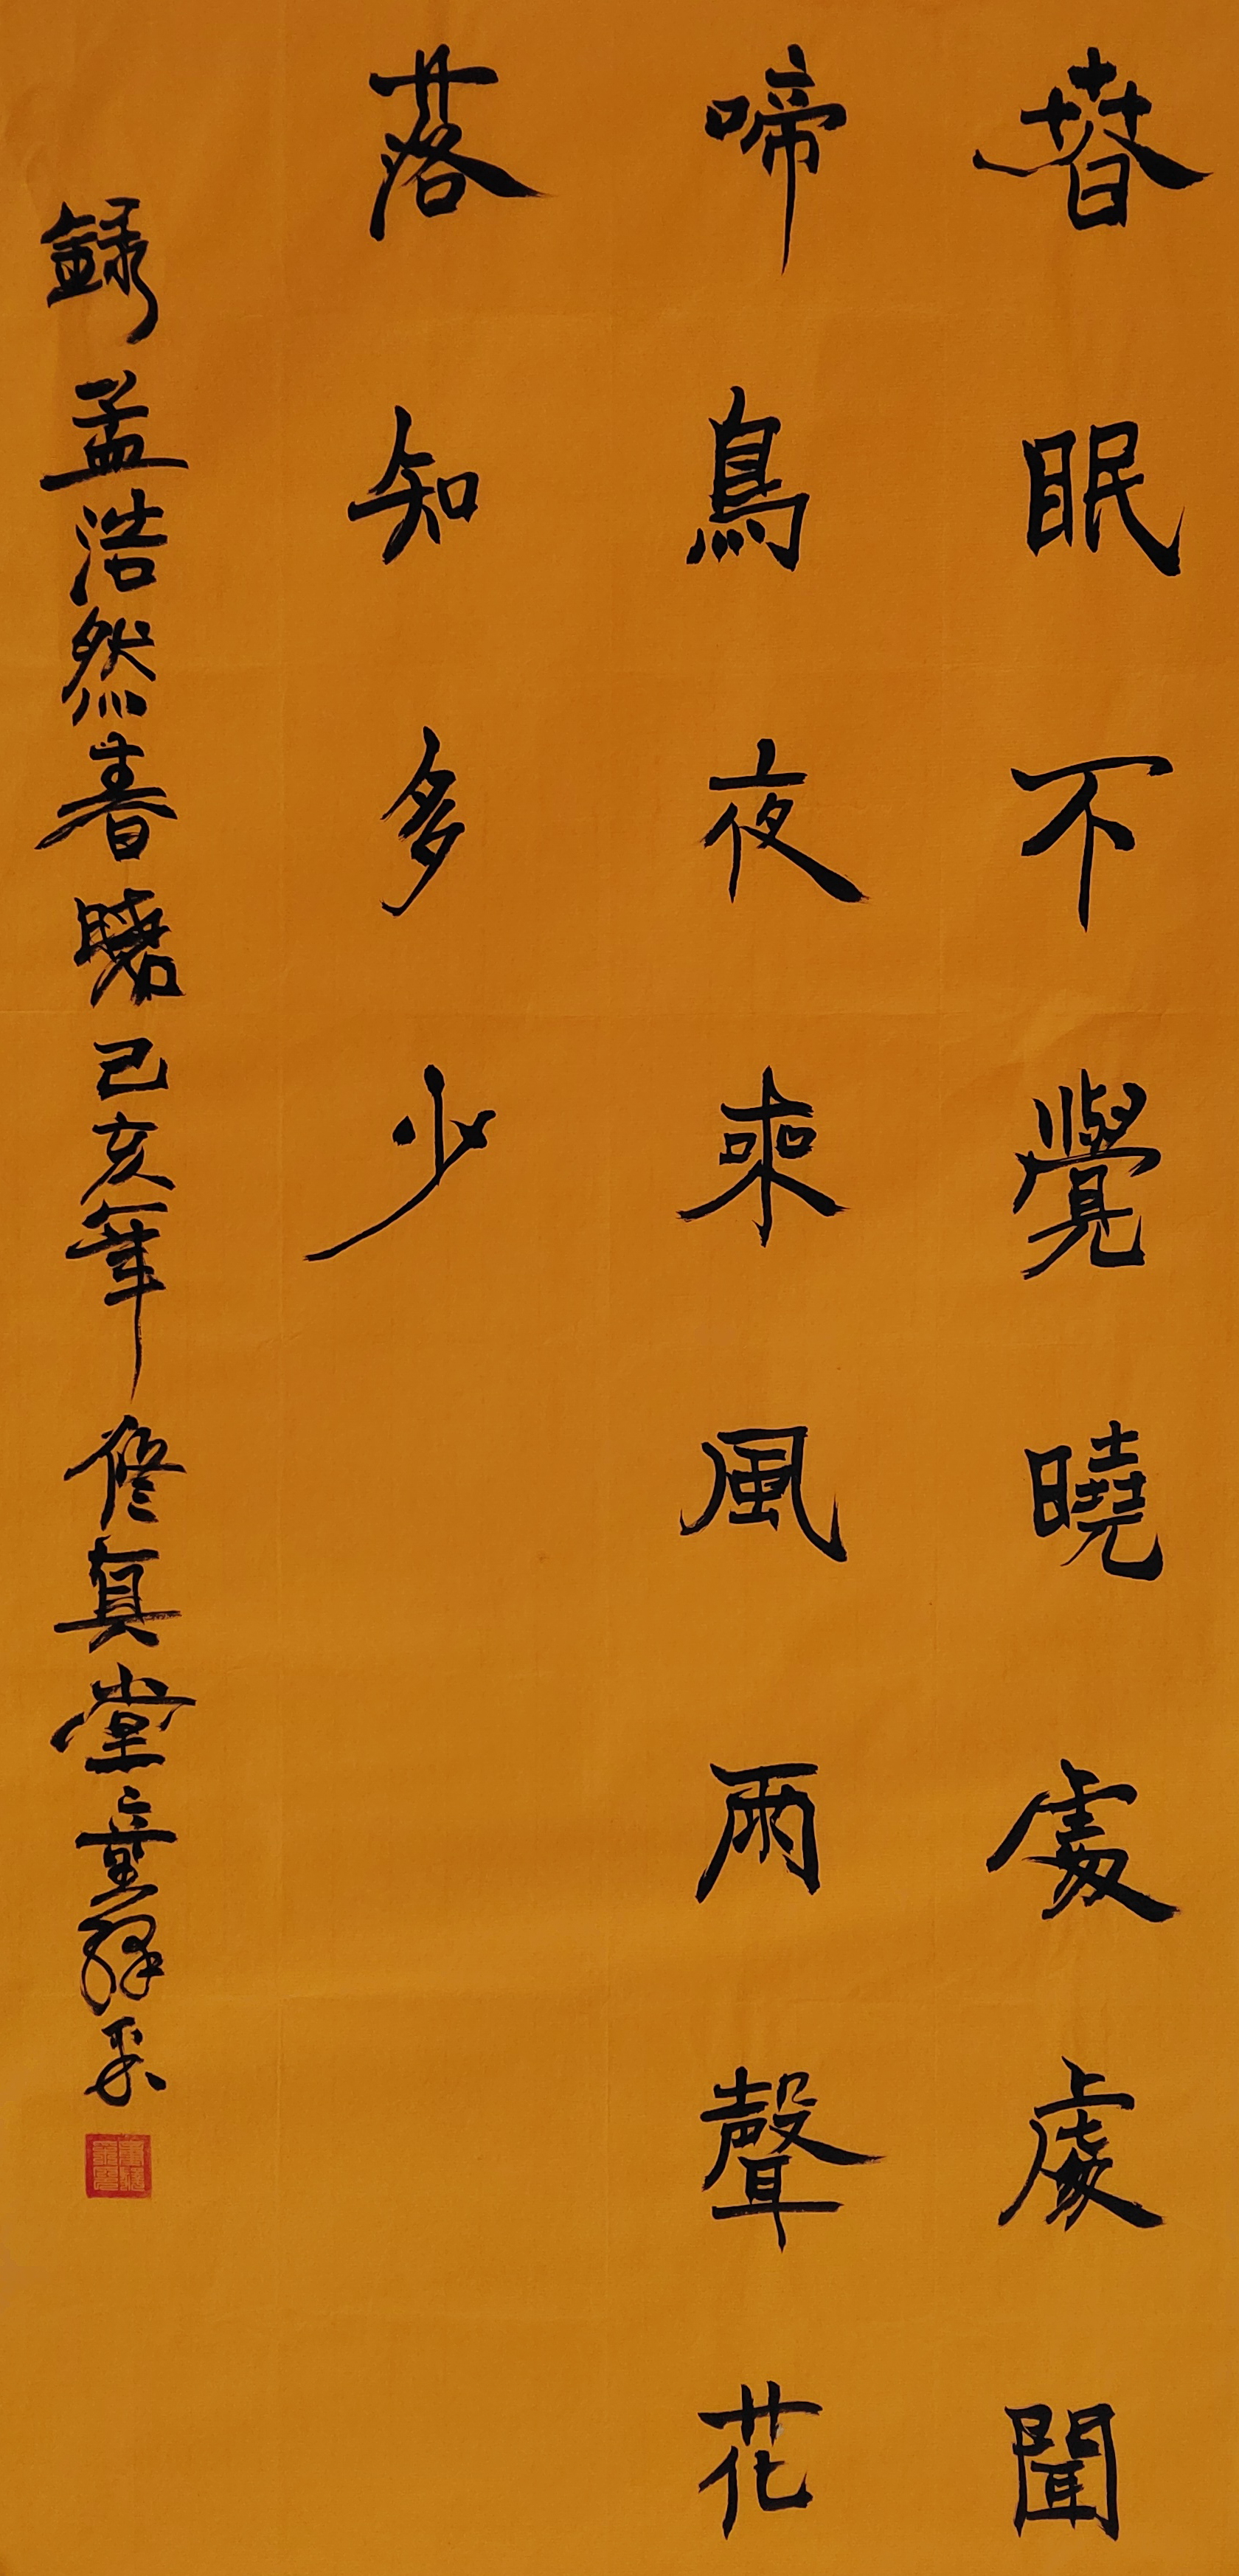 春眠不覺曉處處聞
啼鳥夜來風雨聲花
落知多少
錄孟浩然春曉己亥年修真堂童